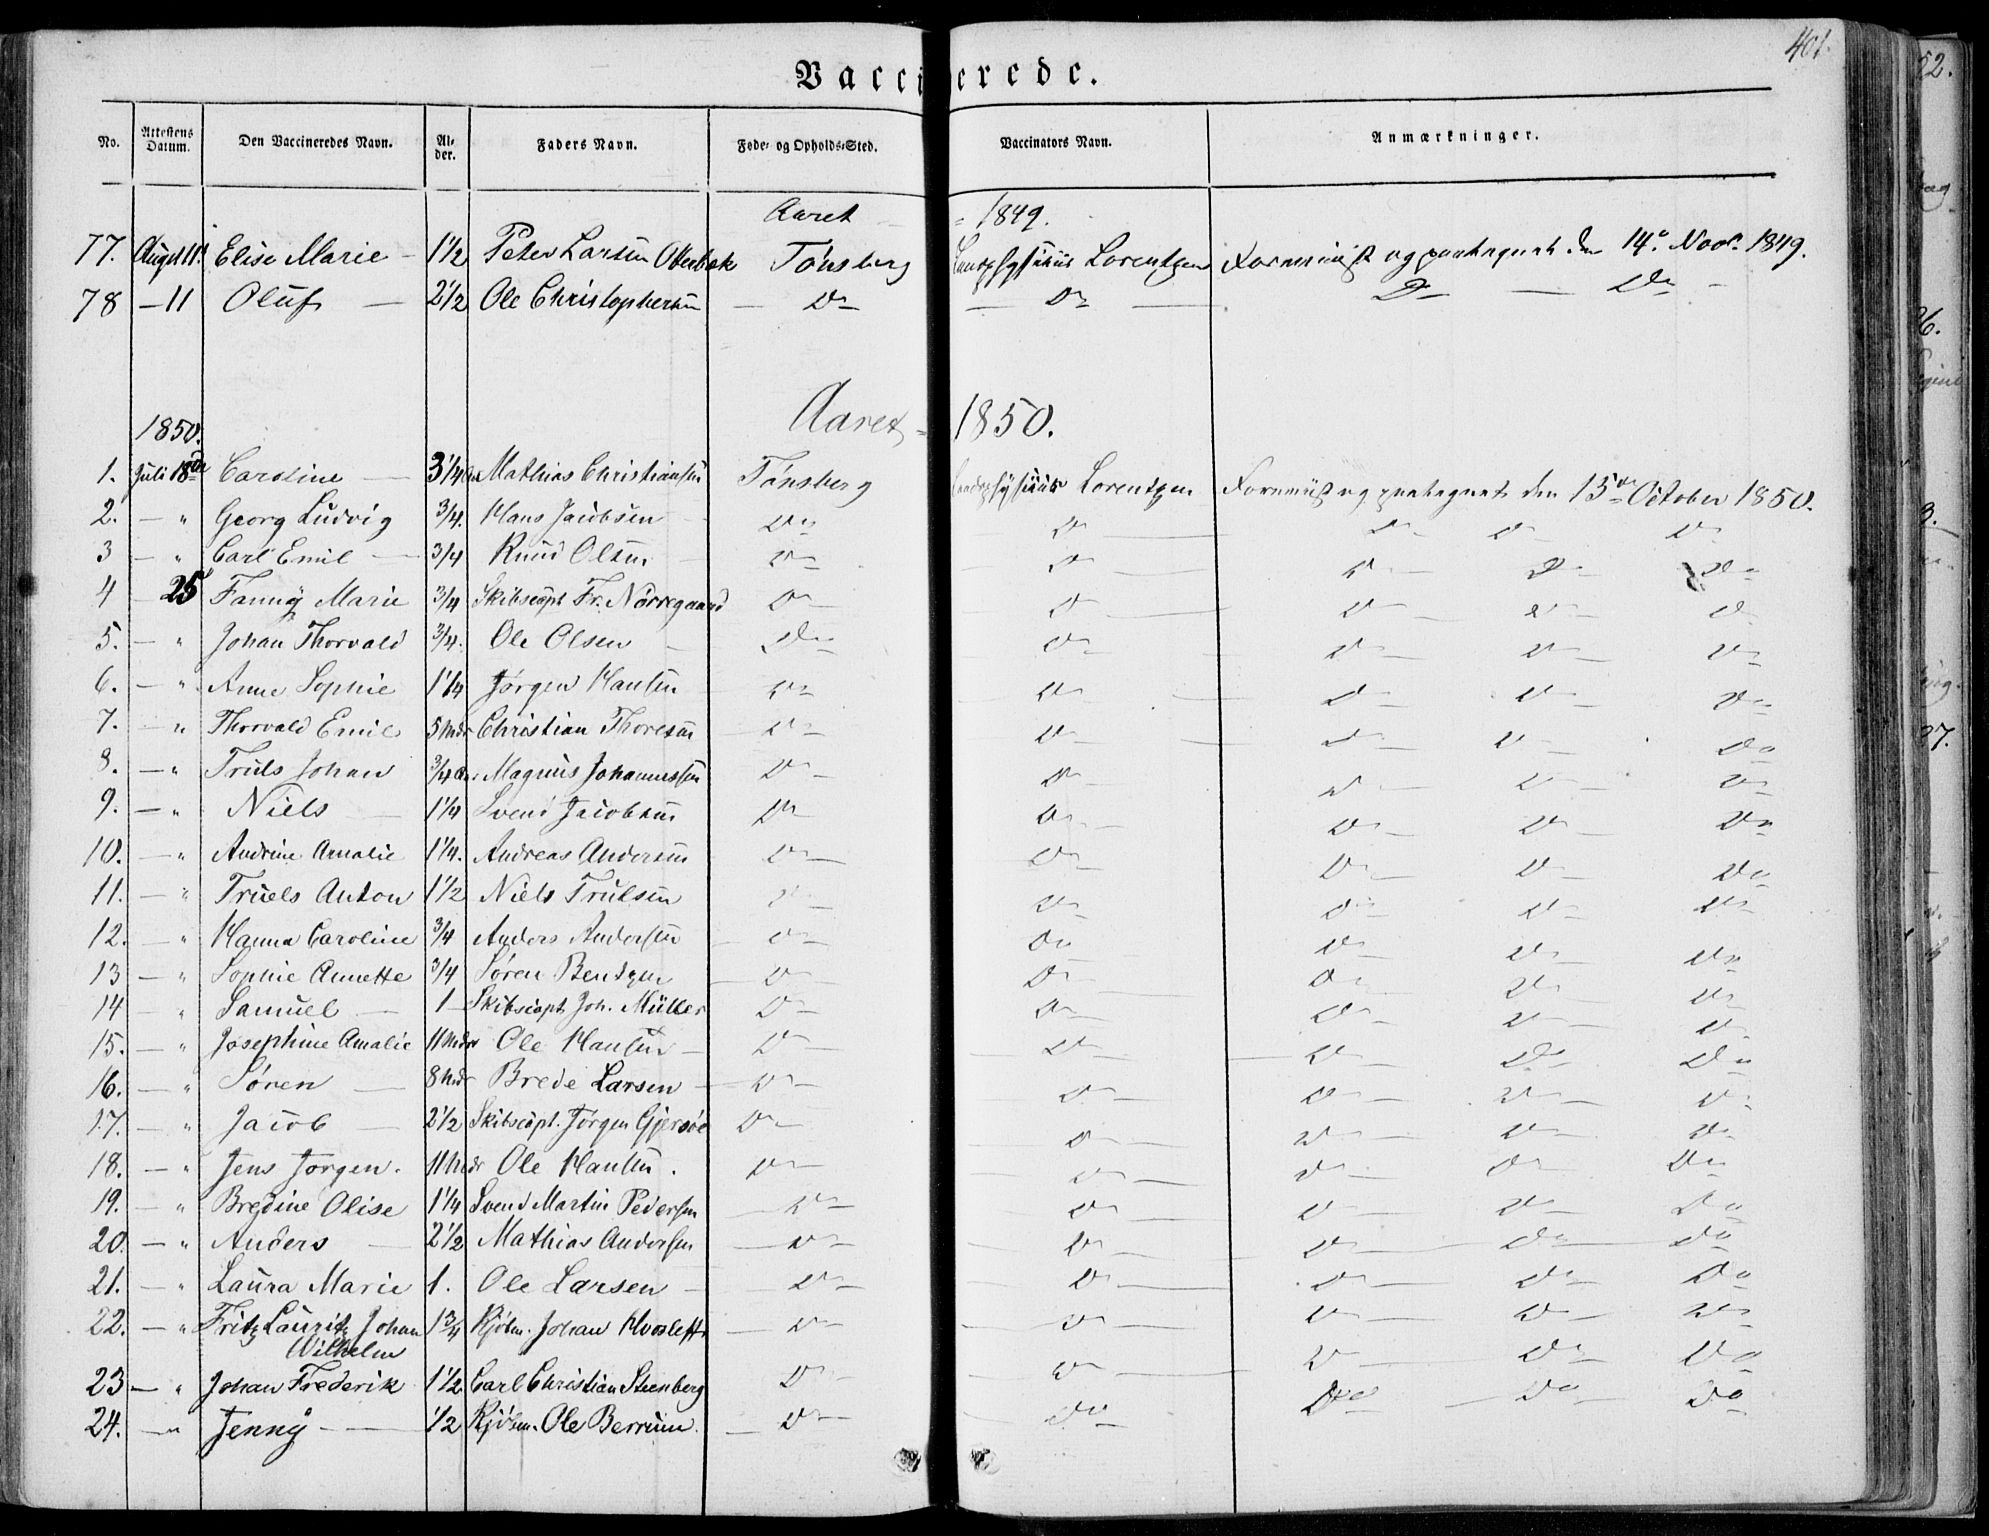 401.
Vaccinerede.
No. Attestens Datum. Den Vaccineredes Navn. Al-der. Faders Navn. Føde- og Opholds-Sted. Vaccinators Navn. Anmærkninger.
Aaret = 1849.
77. August 11t Elise Marie – 1 1/2 Peter Larsen Tönsberg Lorentzen Foreviist og paategnet den 14de Novr. 1849.
78 – 11 Oluf — 2 1/2 Ole Christophersen — Do — Do — Do — Do –
Aaret = 1850.
1850.
1. Juli 18de Caroline — 3 1/4 Aar Mathias Christiansen Tönsberg Lorentzen Foreviist og paategnet den 15de October 1850.
2. – " Georg Ludvig 3/4. Hans Jacobsen – Do Do Do Do Do
3 – " Carl Emil — 3/4 Knud Olsen – Do Do Do Do Do
4 25 Fanny Marie 3/4 Skibscapt Fr. Nörregaard Do Do Do Do Do
5. – " Johan Thorvald 3/4. Ole Olsen – Do Do Do Do Do
6. – " Anne Sophie 1 1/4 Jörgen Hansen Do Do Do Do Do
7. – " Thorvald Emil 5 Mdr Christian Thoresen Do Do Do Do Do
8. – " Truls Johan 3/4 Aar Magnus Johannessen Do Do Do Do Do
9. – " Niels — 1 1/4 Svend Jacobsen Do Do Do Do Do
10. – " Andrine Amalie 1 1/4. Andreas Andersen Do Do Do Do Do
11. – " Truels Anton 1 1/2 Niels Trulsen Do Do Do Do Do
12. – " Hanna Caroline 3/4 Anders Andersen – Do Do Do Do Do
13 – " Sophie Annette 3/4 Sören Bentzen – Do Do Do Do Do
14 – " Samuel — 1 – Skibscapt Joh. Müller Do Do Do Do Do
15. – " Josephine Amalie 11 Mdr Ole Hansen – Do Do Do Do Do
16. – " Sören — 8 Mdr Brede Larsen – Do Do Do Do Do
17. – " Jacob — 2 1/2 Skibscapt. Jörgen Gjersöe Do Do Do Do Do
18. – " Jens Jörgen. 11 Mdr Ole Hansen. Do Do Do Do Do
19. – " Bredine Olise 1 1/4 Svend Martin Pedersen – Do Do Do Do Do
20. – " Anders — 2 1/2 Mathias Andersen – Do Do Do Do Do
21. – " Laura Marie 1. Ole Larsen – Do Do Do Do Do
22. – " Fritz Lauritz Johan 1 3/4 Kjöbm. Johan – Do Do Do Do Do
Wilhelm
23 – " Johan Frederik 1 1/2 Carl Christian Steenberg Do Do Do Do Do
24. – " Jenny — 1/2 Kjöbm. Ole Berrum. – Do Do Do Do Do